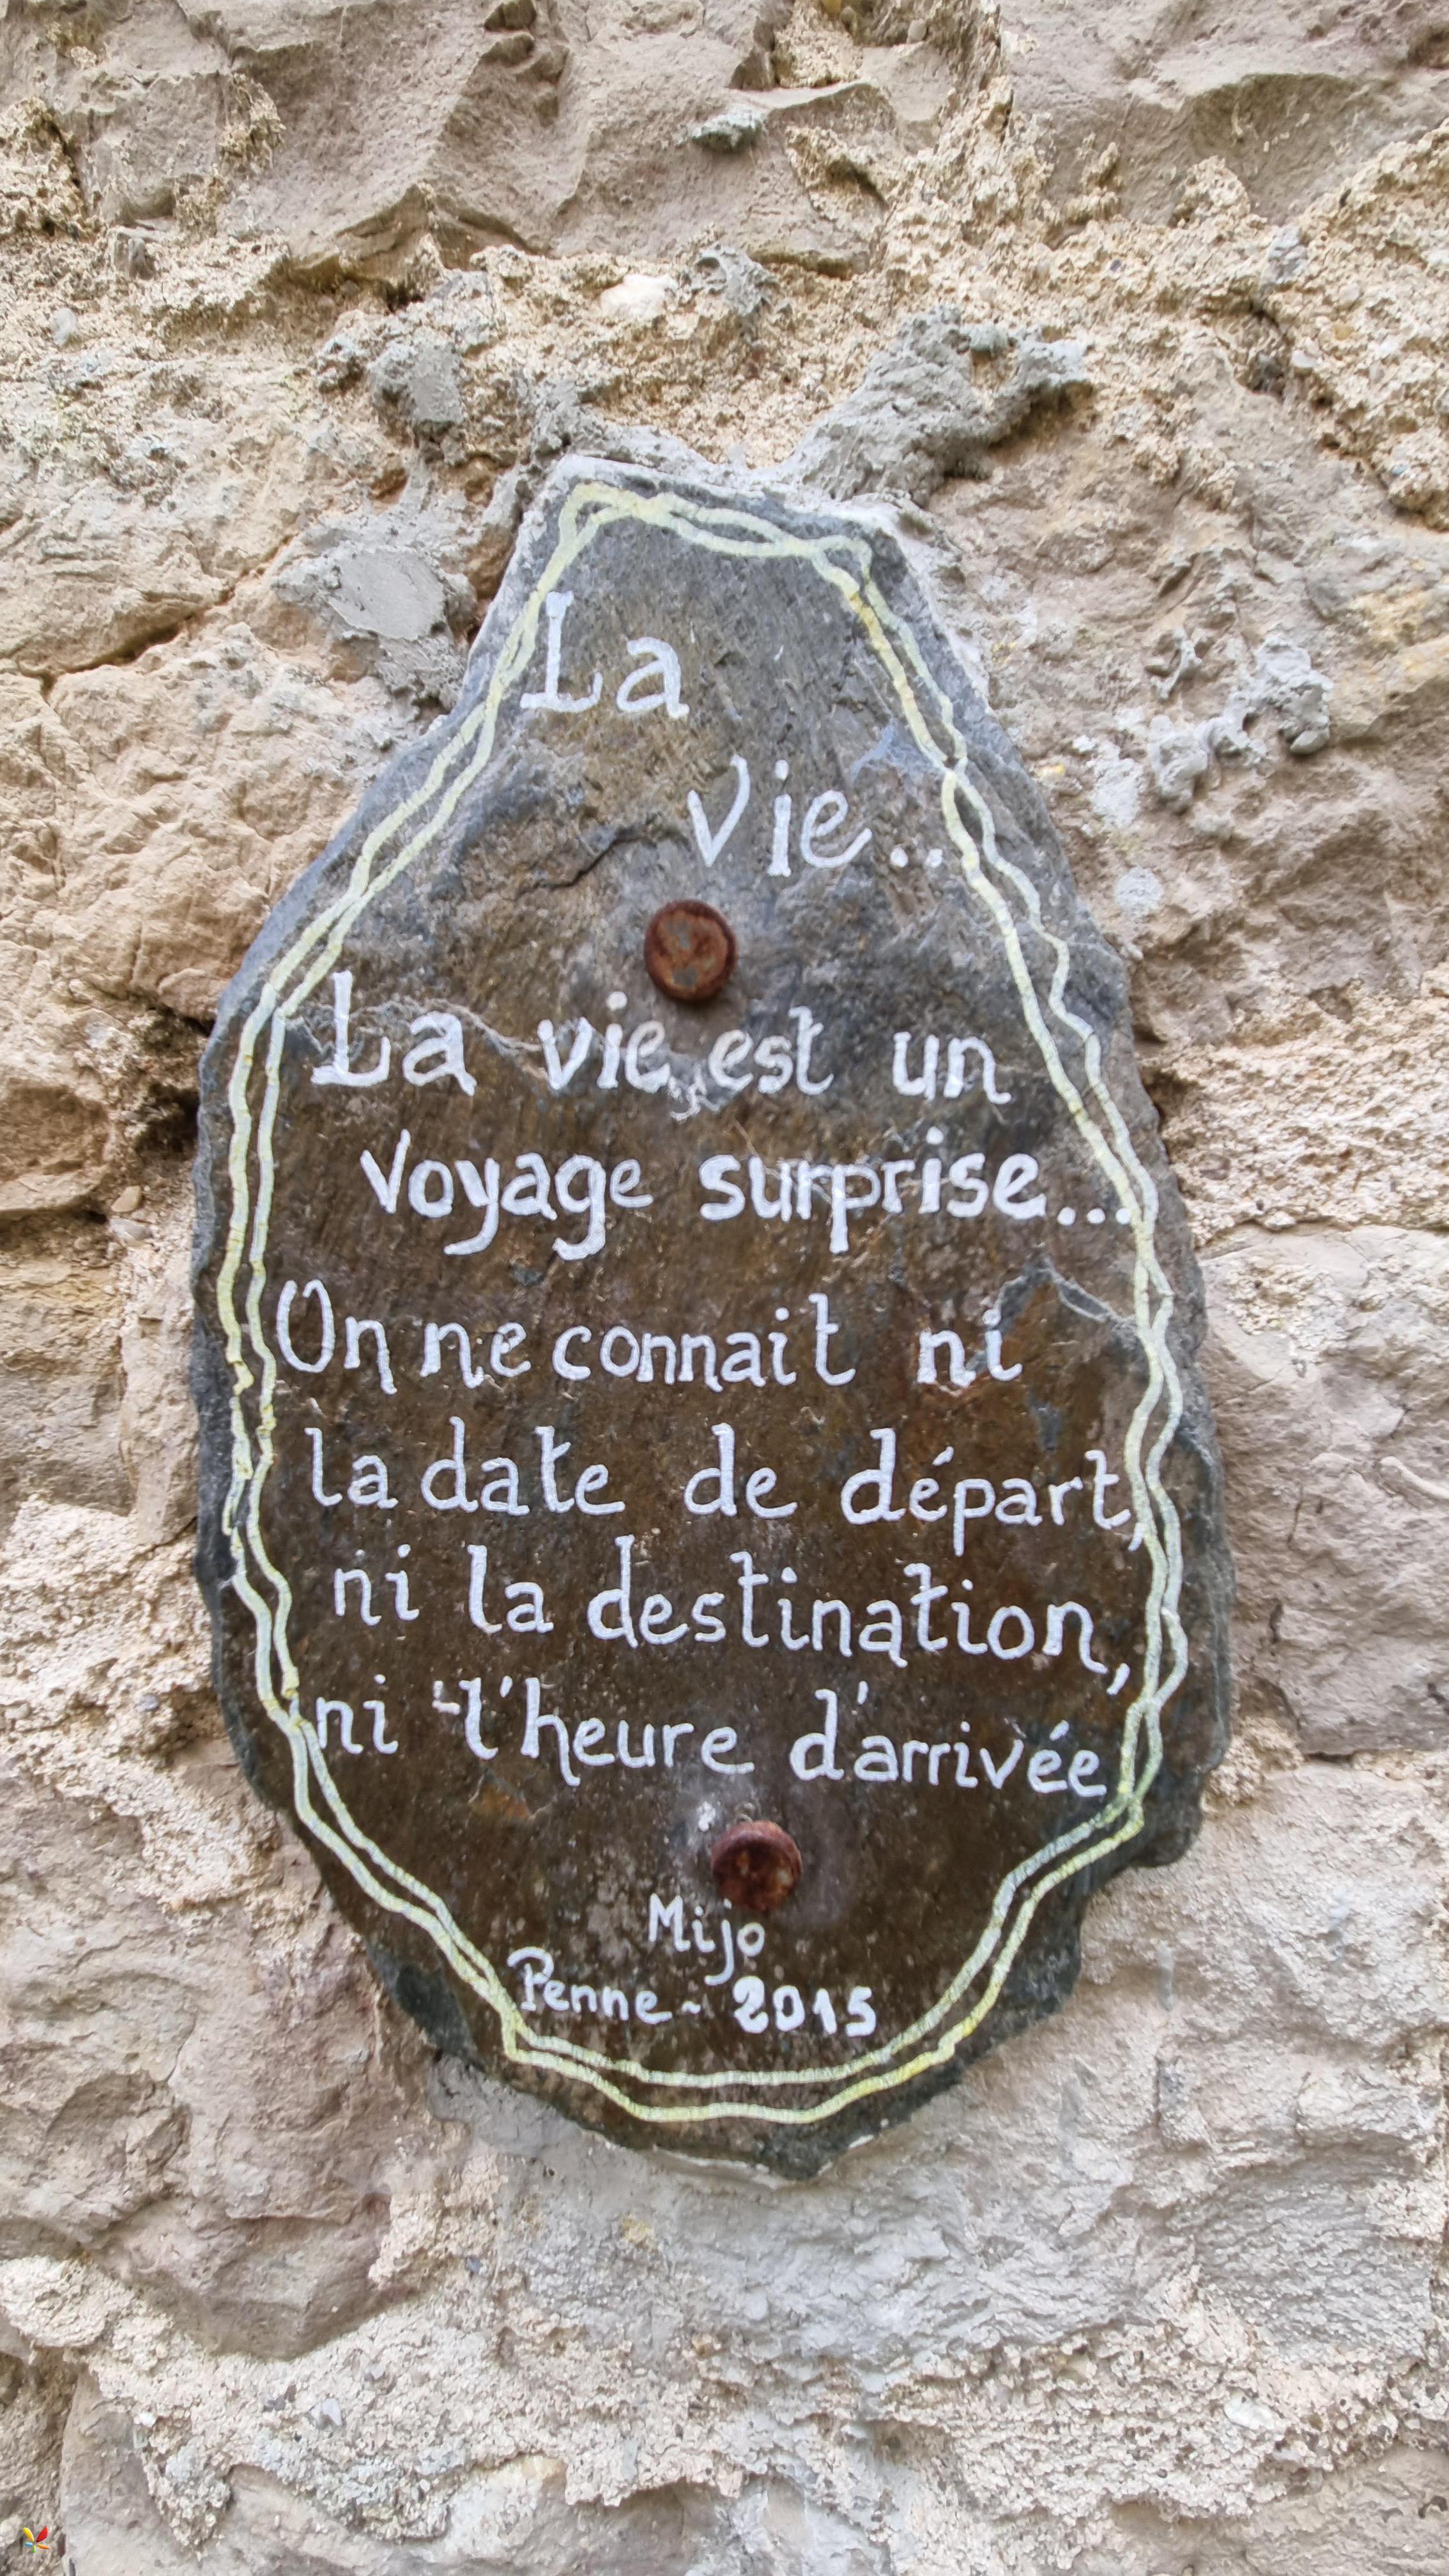 La
vie..
La vie est un
voyage surprise...
On ne connait ni
la date de départ,
ni la destination,
ni l'heure d'arrivée
Mijo
Penne - 2015